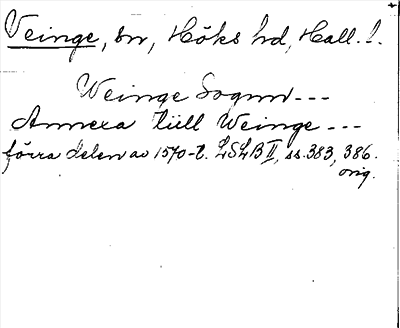 Veinge, sn, Höks hd, Hall. l.
Weinge Sognn---
Annexa tiill Weinge---
förra delen av 1570-t. LSLB II, ss. 383, 386.
orig.